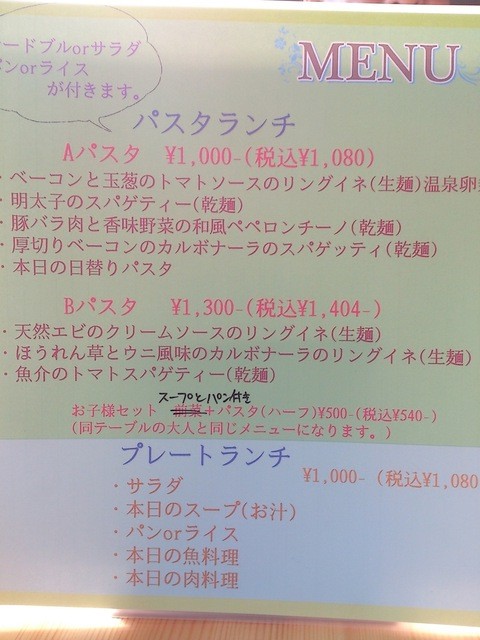 ードブルorサラダ
パンorライス
が付きます。
MENU
パスタランチ
Aパスタ ¥1,000-(税込¥1,080)
・ベーコンと玉葱のトマトソースのリングイネ(生麺)温泉卵
・明太子のスパゲティー(乾麺)
・豚バラ肉と香味野菜の和風ペペロンチーノ(乾麺)
・厚切りベーコンのカルボナーラのスパゲッティ(乾麺)
・本日の日替りパスタ
Bパスタ ¥1,300-(税込¥1,404-)
・天然エビのクリームソースのリングイネ(生麺)
・ほうれん草とウニ風味のカルボナーラのリングイネ(生麺)
・魚介のトマトスパゲティー(乾麺)
スープとパン付き
お子様セット 前菜+パスタ(ハーフ)¥500-(税込¥540-)
(同テーブルの大人と同じメニューになります。)
プレートランチ
¥1,000- (税込¥1,080
・サラダ
・本日のスープ(お汁)
・パンorライス
・本日の魚料理
・本日の肉料理